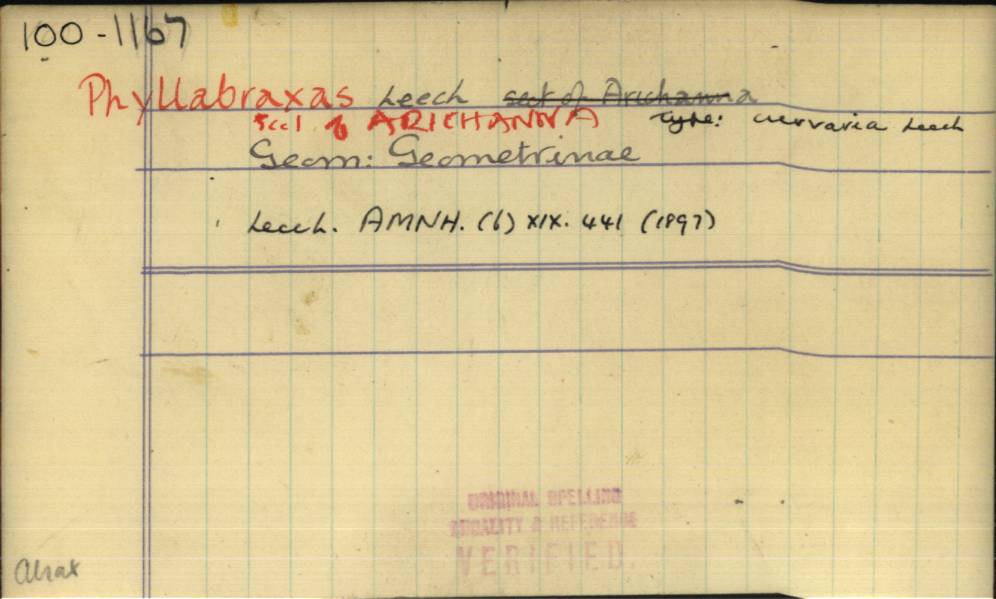 100-1167
Phyllabraxas Leech sect of Arichanna
sect of ARICHANNA type: curvaria Leech
Geom: Geometrinae
Leech. AMNH. (6) XIX. 441 (1897)
ORIGINAL SPELLING
LOCALITY & REFERENCE
VERIFIED.